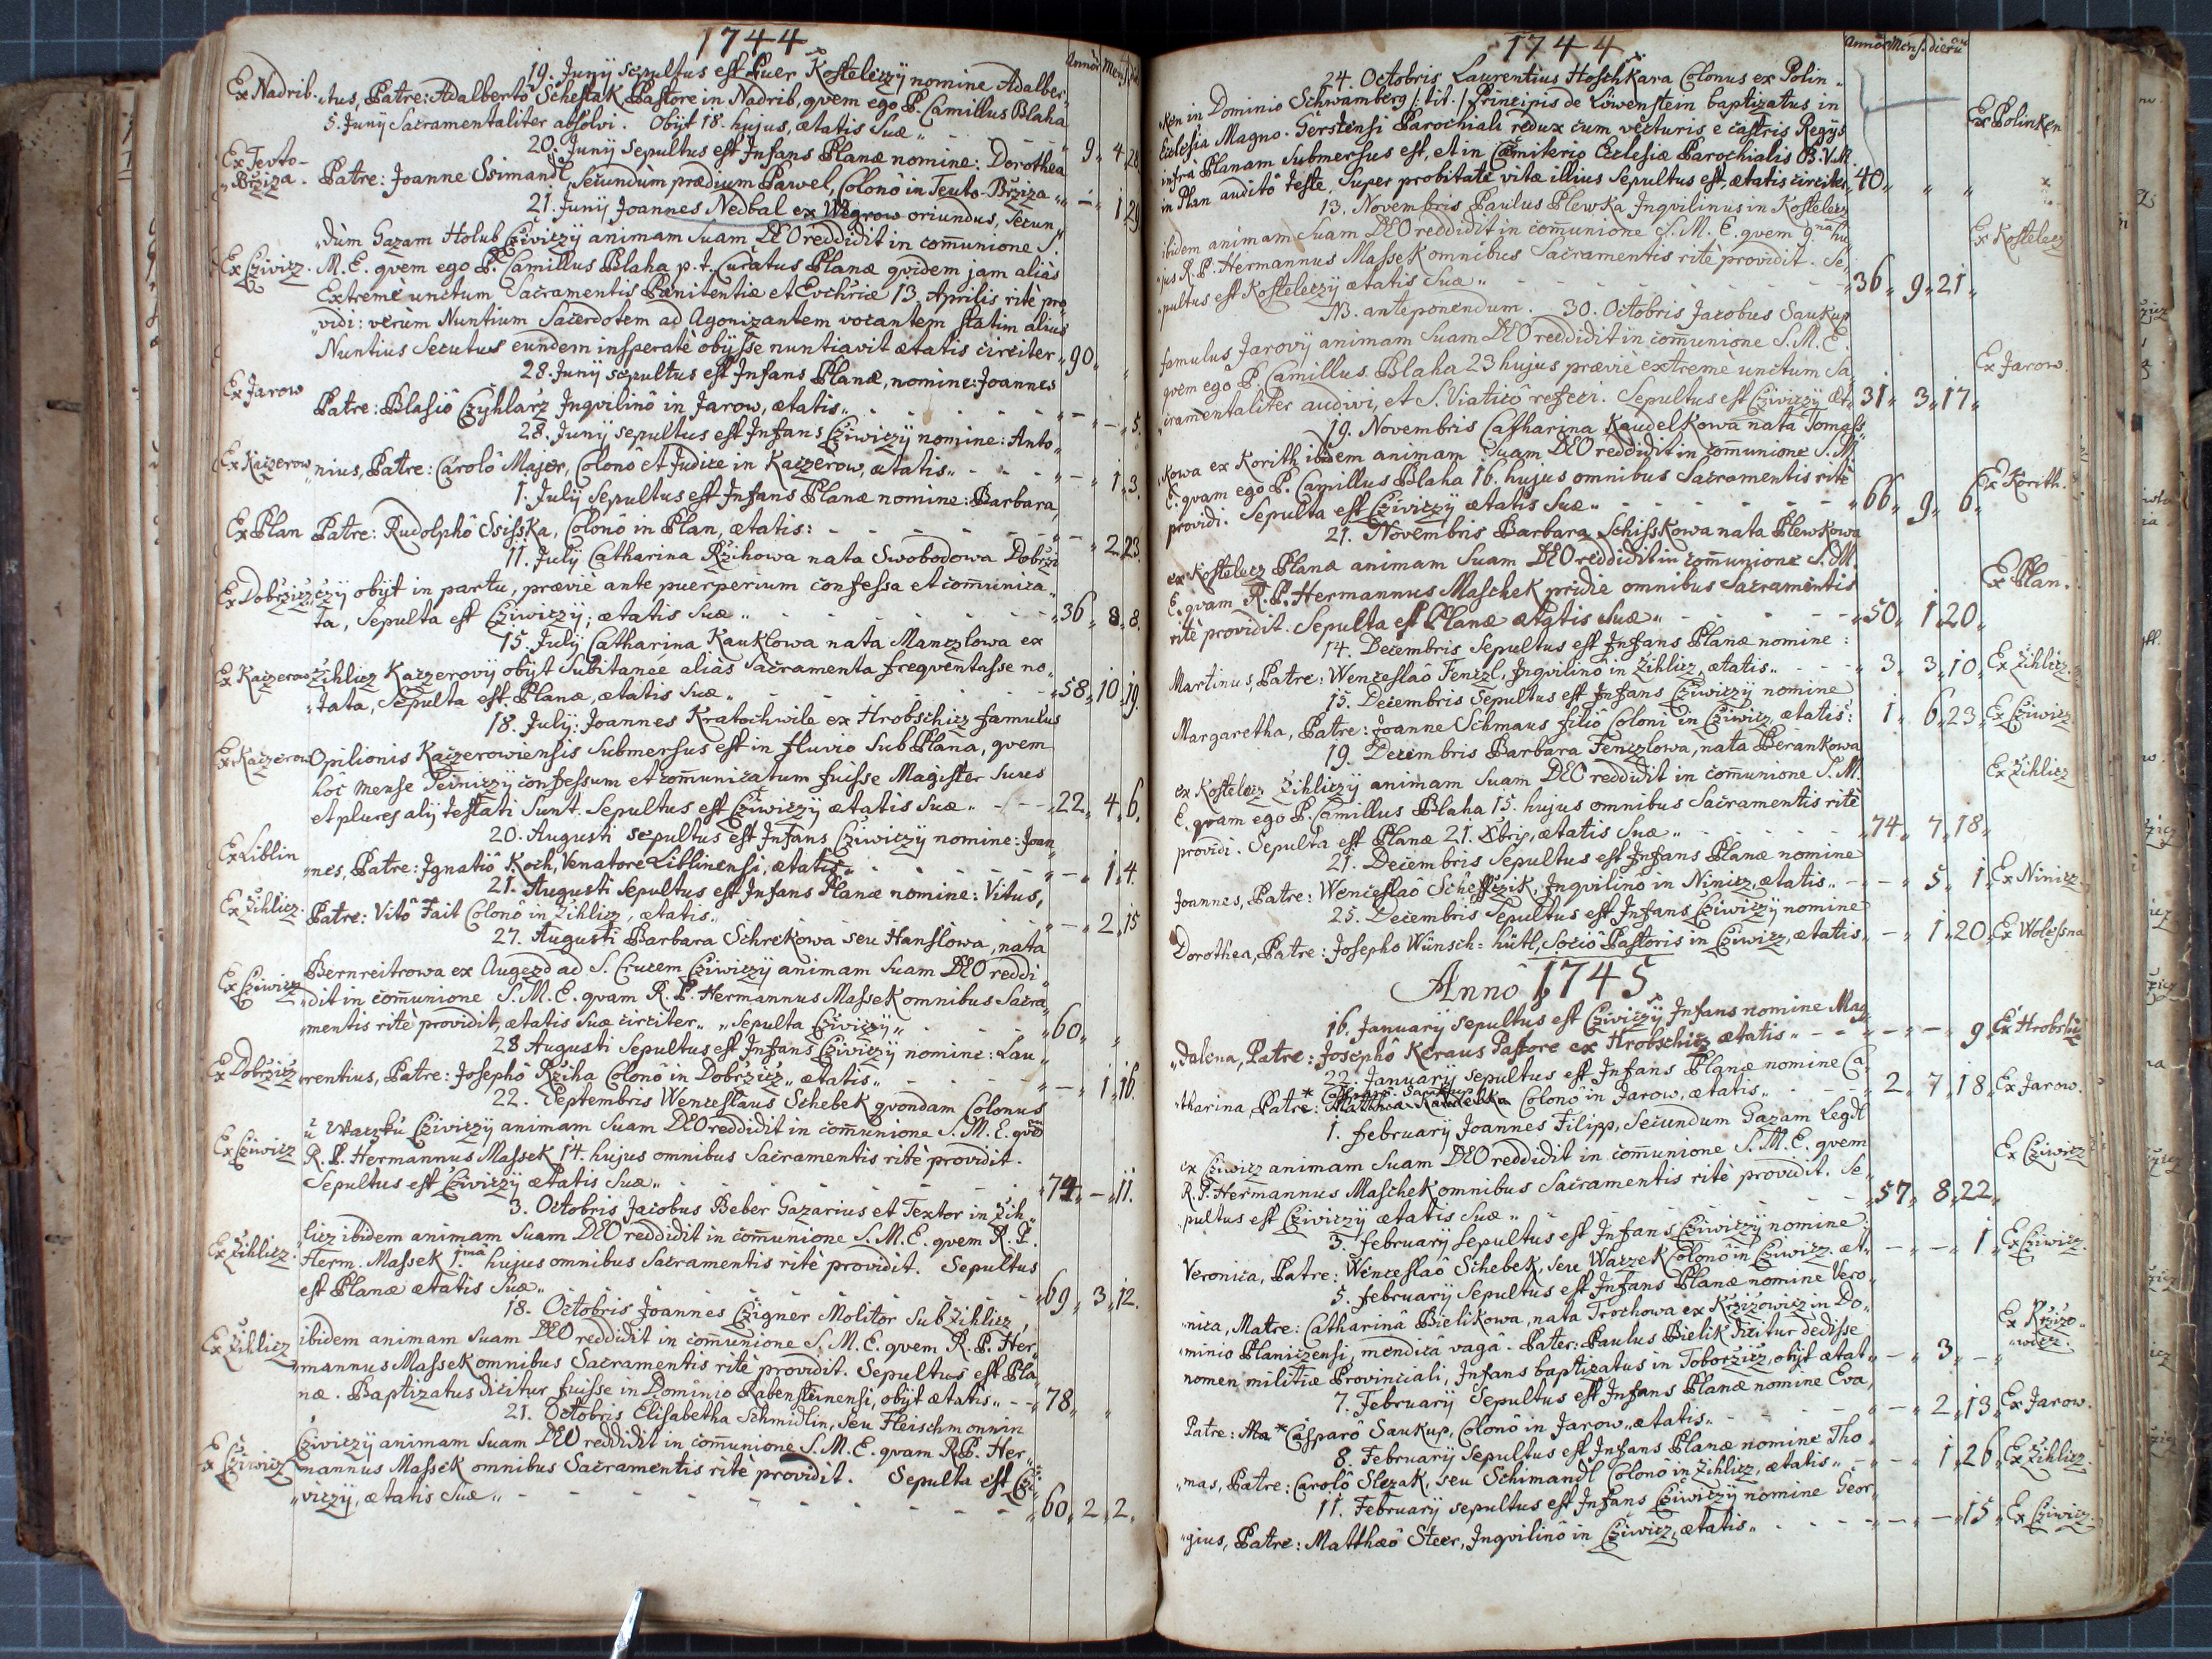 1744
Annor Mens. die
19. Junÿ sepultus est Puer Kosteleczÿ nomine Adalber„
Ex Nadrib. „tus, Patre: Adalbertô Schestak Pastore in Nadrib, qvem ego P. Camillus Blaha
5. Junÿ Sacramentaliter absolvi. Obÿt 18. hujus, ætatis Suæ „ 9„ 4„28.
20. Junÿ Sepultus est Infans Planæ nomine: Dorothea
Ex Teuto-„Brziza. Patre: Joanne Ssimandl, Secundùm prædium Pawel, Colonô in Teuto-Brziza „ – „ 1„29
21. Junÿ Joannes Nedbal ex Wegrow oriundus, Secun„
„dùm Gazam Holub Cziviczÿ animam Suam DEO reddidit in com̄unione S.
Ex Czivicz. M. E. qvem ego P. Camillus Blaha p. t. Curatus Planæ qvidem jam aliàs
Extremè unctum Sacramentis Pænitentiæ et Evchriæ 13. Aprilis ritè pro„
„vidi: verùm Nuntium Sacerdotem ad Agonizantem vocantem statim alius
Nuntius Secutus eundem insperatè obÿsse nuntiavit ætatis circiter „90„ „
28. Junÿ sepultus est Infans Planæ, nomine: Joannes
Ex Jarow Patre: Blasiô Czyhlarz Inqvilinô in Jarow, ætatis„ „ – „ – „ 5.
28. Junÿ sepultus est Infans Cziwiczÿ nomine: Anto„
Ex Kaczerow „nius, Patre: Carolô Majer, Colonô et Judice in Kaczerow, ætatis„ „ – „ 1„ 3.
1. Julÿ Sepultus est Infans Planæ nomine: Barbara,
Ex Plan Patre: Rudolphô Ssisska, Colonô in Plan, ætatis: „ – „ 2„23.
11. Julÿ Catharina Rzihowa nata Swobodowa Dobrzi
Ex Dobrzicz „czÿ obÿt in partu, præviè ante puerperium confessa et com̄unica„
ta, Sepulta est Cziwiczÿ, ætatis Suæ „ „36„ 8„ 8.
15. Julÿ Catharina Kauklowa nata Manczlowa ex
Ex Kaczerow Zihlicz Kaczerovÿ obÿt Subitaneè aliàs Sacramenta freqventasse no„
„tata, Sepulta est Planæ, ætatis Suæ „ „58„10„19.
18. Julÿ: Joannes Kratochwile ex Hrobschicz famulus
Ex Kaczerow Opilionis Kaczerowiensis Submersus est in fluvio Sub Plana, qvem
hôc mense Teiniczÿ confessum et com̄unicatum fuisse Magister Suus
et plures alÿ testati Sunt. Sepultus est Cziwiczÿ ætatis Suæ „ - - - „22„ 4„ 6.
20. Augusti sepultus est Infans Cziwiczÿ nomine: Joan„
Ex Liblin „nes, Patre: Ignatiô Koch, Venatore Liblinensi, ætatis„ „ – „ 1„ 4.
21. Augusti Sepultus est Infans Planæ nomine: Vitus,
Ex Zihlicz. Patre: Vitô Fait Colonô in Zihlicz, ætatis„ „ – „ 2„15
27. Augusti Barbara Schrekowa seu Hanslowa, nata
Bernreitrowa ex Augezd ad S. Crucem Cziwiczÿ animam Suam DEO reddi„
Ex Cziwicz „dit in com̄unione S. M. E. qvam R. P. Hermannus Massek omnibus Sacra„
„mentis ritè providit, ætatis Suæ circiter„ „Sepulta Cziviczÿ„ „60„ „
28 Augusti Sepultus est Infans Cziviczÿ nomine: Lau„
Ex Dobrzicz „rentius, Patre: Josephô Rziha Colonô in Dobrzicz„ ætatis„ „ – „ 1„16.
22. Septembris Wenceslaus Schebek qvondam Colonus
u Waczků Cziviczÿ animam Suam DEO reddidit in com̄unione S. M. E. qvē
Ex Cziwicz R. P. Hermannus Massek 14. hujus omnibus Sacramentis ritè providit.
Sepultus est Cziviczÿ ætatis Suæ„ „74„ – „11.
3. Octobris Jacobus Beber Gazarius et Textor in Zih„
„licz ibidem animam Suam DEO reddidit in com̄unione S. M. E. qvem R. P.
Ex Zihlicz. Herm. Massek 1.mâ hujus omnibus Sacramentis ritè providit. Sepultus
est Planæ ætatis Suæ„ „69„ 3„12.
18. Octobris Joannes Czigner Molitor Sub Zihlicz,
ibidem animam Suam DEO reddidit in com̄unione S. M. E. qvem R. P. Her„
Ex Zihlicz „mannus Massek omnibus Sacramentis ritè providit. Sepultus est Pla„
næ. Baptizatus dicitur fuisse in Dominio Rabensteinensi, obÿt ætatis„ - - „78„ „
21. Octobris Elisabetha Schmidlin, seu Fleischmonnin
Cziviczÿ animam Suam DEO reddidit in com̄unione S. M. E. qvam R. P. Her„
Ex Cziwicz mannus Massek omnibus Sacramentis ritè providit. Sepulta est Czi„
„viczÿ, ætatis Suæ„ „60„ 2„ 2„
1744
Annor Mens. dierū
24. Octobris Laurentius Hoschkara Colonus ex Polin„
„ken in Dominio Schwamberg /: tit. / Principis de Löwenstein baptizatus in Ex Polinken
Ecclesia Magno-Gerstensi Parochiali redux cum vecturis e castris Regÿs
infra Planam Submersus est, et in Cæmiterio Ecclesiæ Parochialis B. V. M.
in Plan auditô teste, Super probitate vitæ illius Sepultus est, ætatis circiter „40„ „ „
13. Novembris Paulus Plewka Inqvilinus in Kostelecz
ibidem animam Suam DEO reddidit in com̄unione S. M. E. qvem 9.na hu„ Ex Kostelecz
„jus R. P. Hermannus Massek omnibus Sacramentis ritè providit. Se„
„pultus est Kosteleczÿ ætatis Suæ „ „36„ 9„21„
N3. anteponendum. 30. Octobris Jacobus Saukup
famulus Jarovÿ animam Suam DEO reddidit in com̄unione S. M. E. Ex Jarow.
qvem ego P. Camillus Blaha 23 hujus præviè extremè unctum Sa„
„cramentaliter audivi, et S. Viaticô refeci. Sepultus est Cziwiczÿ æt„ 31„ 3„17„
19. Novembris Catharina Kaudelkowa nata Tomass„
„kowa ex Korith ibidem animam Suam DEO reddidit in com̄unione S. M.
E. qvam ego P. Camillus Blaha 16. hujus omnibus Sacramentis ritè Ex Korith.
providi. Sepulta est Cziwiczÿ ætatis Suæ„ „66„ 9„ 6„
21. Novembris Barbara Schisskowa nata Plewkowa
ex Kostelecz Planæ animam Suam DEO reddidit in com̄unione S. M. Ex Plan.
E. qvam R. P. Hermannus Maschek pridie omnibus Sacramentis
ritè providit. Sepulta est Planæ ætatis Suæ„ „50„ 1„20„
14. Decembris Sepultus est Infans Planæ nomine:
Martinus, Patre: Wenceslaô Fenczl, Inqvilinô in Zihlicz, ætatis„ - - - „ 3„ 3„10„ Ex Zihlicz.
15. Decembris Sepultus est Infans Cziwiczÿ nomine
Margaretha, Patre: Joanne Schmaus filiô Coloni in Cziwicz, ætatis: 1„ 6„23„ Ex Cziwicz.
19. Decembris Barbara Fenczlowa, nata Berankowa
ex Kostelecz Zihliczÿ animam Suam DEO reddidit in com̄unione S. M. Ex Zihlicz
E. qvam ego P. Camillus Blaha 15. hujus omnibus Sacramentis ritè
providi. Sepulta est Planæ 21. Xbris, ætatis Suæ„ „74„ 7„18„
21. Decembris Sepultus est Infans Planæ nomine
Joannes, Patre: Wenceslaô Scheffczik, Inqvilinô in Ninicz, ætatis„ - „ – „ 5„ 1„ Ex Ninicz.
25. Decembris Sepultus est Infans Cziwiczÿ nomine
Dorothea, Patre: Josepho Wünsch-hütl, Sociô Pastoris in Cziwicz, ætatis„ – „ 1„20„ Ex Wolessna
Annô 1745
16. Januarÿ sepultus est Cziviczÿ Infans nomine Mag„
„dalena, Patre: Josephô Keraus Pastore ex Hrobschicz ætatis „ - - „ – „ – „ 9„ Ex Hrobschicz
22. Januarÿ sepultus est Infans Planæ nomine Ca„
* Casparo Saukup
„tharina, Patre: Colonô in Jarow, ætatis„ „ 2„ 7„18„ Ex Jarow.
1. februarÿ Joannes Filipp, Secundum Gazam Legdl
ex Cziwicz animam Suam DEO reddidit in com̄unione S. M. E. qvem Ex Cziwicz
R. P. Hermannus Maschek omnibus Sacramentis ritè providit. Se„
„pultus est Cziviczÿ ætatis Suæ „ „57„ 8„22„
3. februarÿ sepultus est Infans Cziwiczÿ nomine
Veronica, Patre: Wenceslaô Schebek, seu Waczek Colonô in Cziwicz. æt„ – „ – „ 1„ Ex Cziwicz.
5. februarÿ Sepultus est Infans Planæ nomine Vero„
„nica, Matre: Catharinâ Bielikowa, nata Trochowa ex Krzizowicz in Do„ Ex Krzizo„
„minio Planiczensi, mendicâ vagâ. Pater: Paulus Bielik dicitur dedisse „wicz.
nomen militiæ Provinciali, Infans baptizatus in Toborzicz, obÿt ætat„ – „ 3„ – „
7. Februarÿ Sepultus est Infans Planæ nomine Eva,
Patre: Ma * Casparô Saukup, Colonô in Jarow„ ætatis„ „ – „ 2„13„ Ex Jarow.
8. Februarÿ Sepultus est Infans Planæ nomine Tho„
„mas, Patre: Carolô Slezak, seu Schimandl Colonô in Zihlicz, ætatis„ – „ – „ 1„26„ Ex Zihlicz.
11. Februarÿ sepultus est Infans Cziwiczÿ nomine Geor„
„gius, Patre: Matthæô Steer, Inqvilinô in Cziwicz, ætatis„ „ – „ – „15„ Ex Cziwicz.